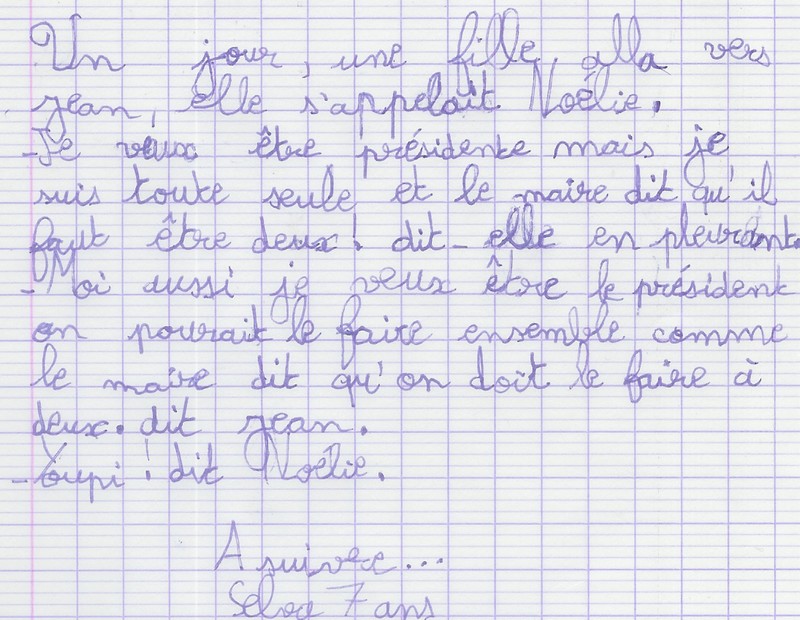 Un jour, une fille, alla vers
jean, elle s'appelait Noélie.
-Je veux être présidente mais je
suis toute seule et le maire dit qu'il
faut être deux! dit-elle en pleurant.
-Moi aussi je veux être le président
on pourait le faire ensemble comme
le maire dit qu'on doit le faire à
deux. dit jean.
-Youpi! dit Noélie.
A suivre...
7 ans